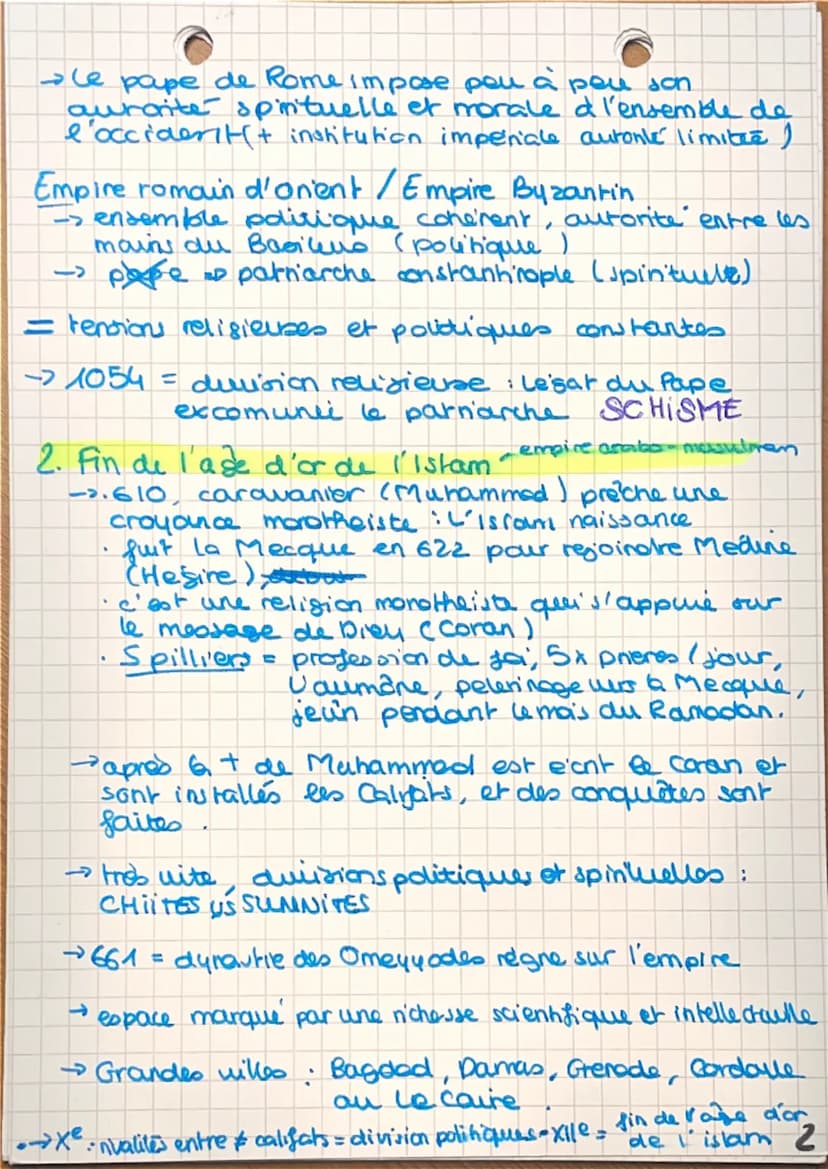 → Le pape de Rome impose peu à peu son
autorité spirituelle et morale à l'ensemble de
l'occident (+ institution impériale autorité limitée)
Empire romain d'orient / Empire Byzantin
→ ensemble politique cohérent, autorité entre les
mains du Basileus (politique)
→ pape ⇒ patriarche constantinople (spirituelle)
= tensions religieuses et politiques constantes
→ 1054 = division religieuse : légat du Pape
excomunié le patriarche SCHISME
2. Fin de l'age d'or de l'Islam - empire arabo-musulman
→ . 610, caravanier (Muhammed) prêche une
croyance monothéiste : L'Islam naissance
. fuit la Mecque en 622 pour rejoindre Médine
(Hégire)
. c'est une religion monothéiste qui s'appuie sur
le message de Dieu (Coran)
. 5 pilliers = profession de foi, 5x prières / jour,
l'aumône, pelerinage vers la Mecque,
jeûn pendant le mois du Ramadan.
→ après la + de Muhammed est écrit le Coran et
sont installés les Califats, et des conquêtes sont
faites.
→ très vite, divisions politiques et spirituelles :
CHIITES VS SUNNITES
→ 661 = dynastie des Omeyyades règne sur l'empire
→ espace marqué par une richesse scientifique et intellectuelle
→ Grandes villes : Bagdad, Damas, Grenade, Cordoue
ou Le Caire.
• → Xe : rivalités entre ≠ califats = division politiques - XIIe = fin de l'age d'or
de l'islam 2